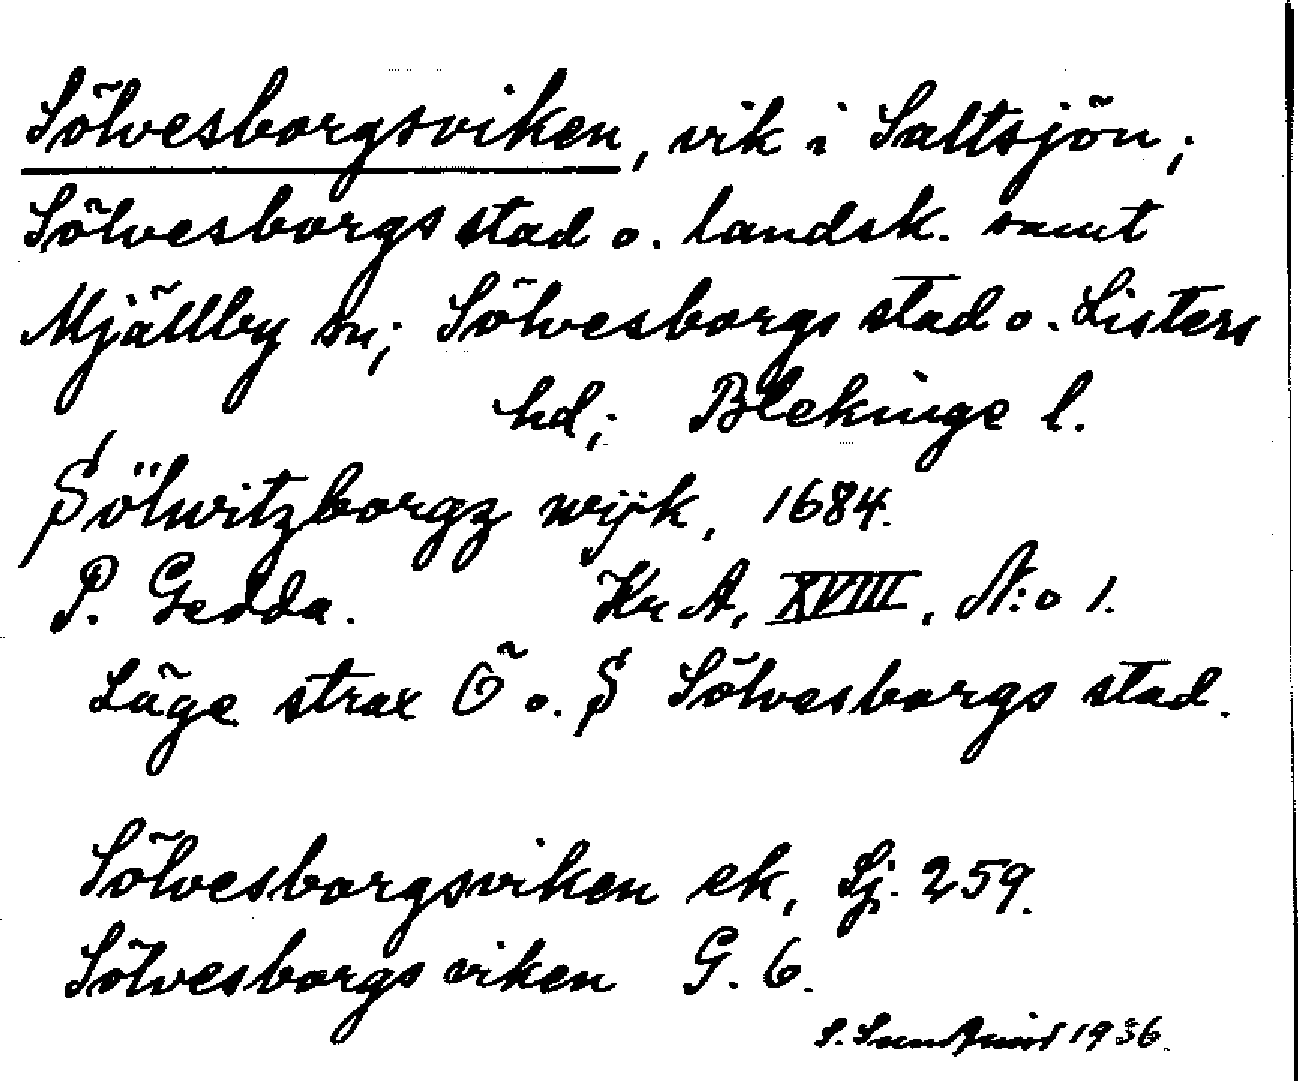 Sölvesborgsviken, vik i Saltsjön;
Sölvesborgs stad o. landsk. samt
Mjällby sn; Sölvesborgs stad o. Listers
hd; Blekinge l.
Sölwitzborgz wijk, 1684.
P. Gedda. Kr A, XVIII, N:o 1.
Läge strax Ö o. S Sölvesborgs stad.
Sölvesborgsviken ek, Sj. 259.
Sölvesborgsviken G. 6.
S. Sundqvist 1936.